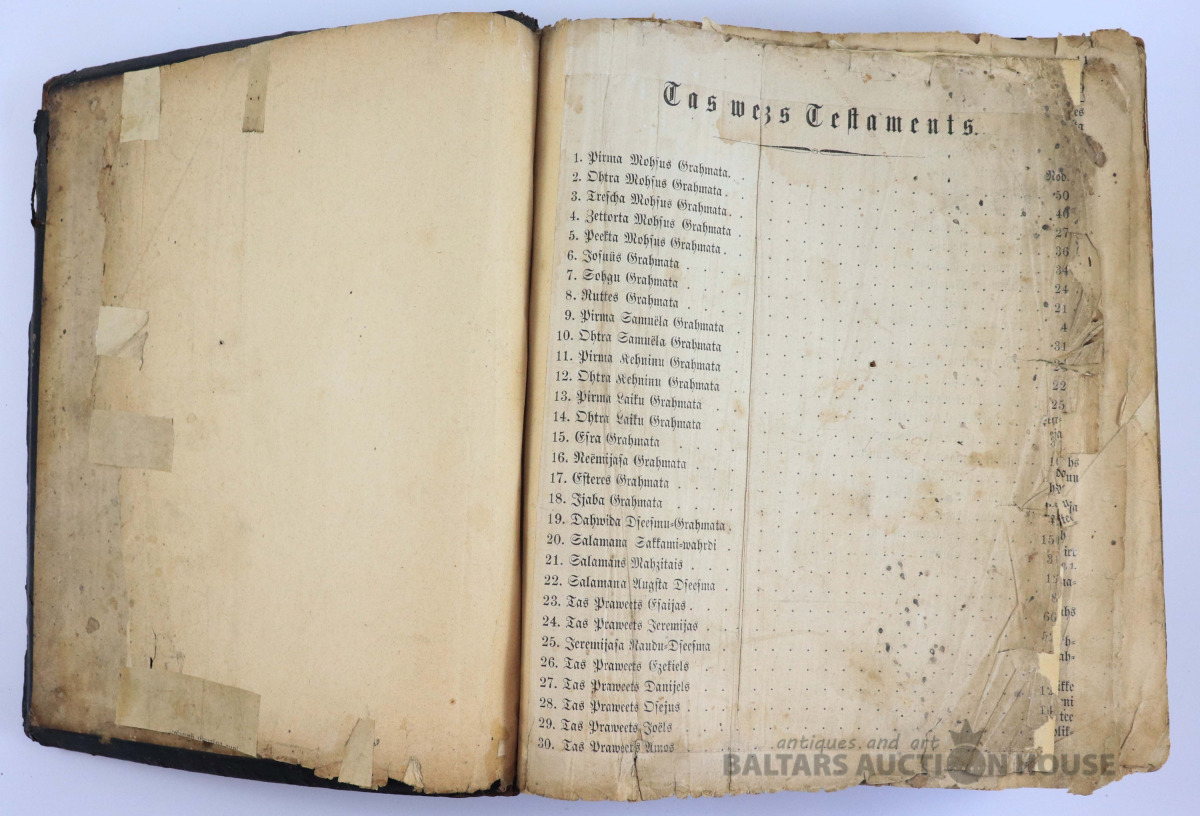 Tas wezs Testaments.
Nod.
1. Pirma Mohsus Grahmata. 50
2. Ohtra Mohsus Grahmata. 40
3. Trescha Mohsus Grahmata. 27
4. Zettorta Mohsus Grahmata 36
5. Peekta Mohsus Grahmata. 34
6. Josuüs Grahmata 24
7. Sohgu Grahmata 21
8. Ruttes Grahmata 4
9. Pirma Samuëla Grahmata 31
10. Ohtra Samuëla Grahmata
11. Pirma Kehninu Grahmata 22
12. Ohtra Kehninu Grahmata 25
13. Pirma Laiku Grahmata
14. Ohtra Laiku Grahmata
15. Esra Grahmata
16. Neëmijasa Grahmata
17. Esteres Grahmata
18. Ijaba Grahmata
19. Dahwida Dseesmu-Grahmata.
20. Salamana Sakkami-wahrdi
21. Salamans Mahzitais
22. Salamana Augsta Dseesma
23. Tas Praweets Esaijas. 66
24. Tas Praweets Jeremijas
25. Jeremijasa Raudu-Dseesma
26. Tas Praweets Ezekiels
27. Tas Praweets Danijels
28. Tas Praweets Osejus
29. Tas Praweets Joëls
30. Tas Praweets Amos
antiques and art
BALTARS AUCTION HOUSE